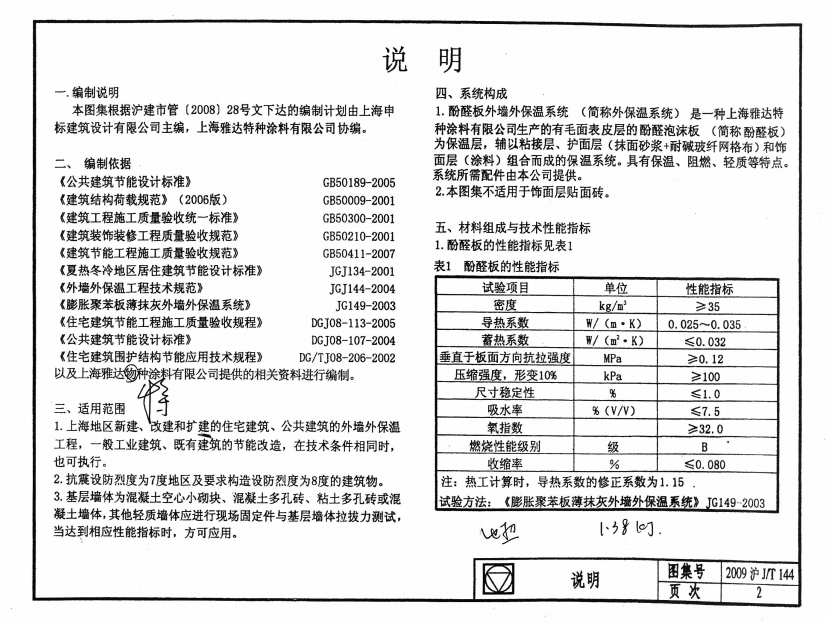 说 明
一.编制说明
本图集根据沪建市管〔2008〕28号文下达的编制计划由上海申
标建筑设计有限公司主编，上海雅达特种涂料有限公司协编。
二、 编制依据
《公共建筑节能设计标准》 GB50189-2005
《建筑结构荷载规范》（2006版） GB50009-2001
《建筑工程施工质量验收统一标准》 GB50300-2001
《建筑装饰装修工程质量验收规范》 GB50210-2001
《建筑节能工程施工质量验收规范》 GB50411-2007
《夏热冬冷地区居住建筑节能设计标准》 JGJ134-2001
《外墙外保温工程技术规范》 JGJ144-2004
《膨胀聚苯板薄抹灰外墙外保温系统》 JG149-2003
《住宅建筑节能工程施工质量验收规程》 DGJ08-113-2005
《公共建筑节能设计标准》 DGJ08-107-2004
《住宅建筑围护结构节能应用技术规程》 DG/TJ08-206-2002
以及上海雅达物种涂料有限公司提供的相关资料进行编制。
特
三、适用范围
1.上海地区新建、改建和扩建的住宅建筑、公共建筑的外墙外保温
工程，一般工业建筑、既有建筑的节能改造，在技术条件相同时，
也可执行。
2.抗震设防烈度为7度地区及要求构造设防烈度为8度的建筑物。
3.基层墙体为混凝土空心小砌块、混凝土多孔砖、粘土多孔砖或混
凝土墙体，其他轻质墙体应进行现场固定件与基层墙体拉拔力测试，
当达到相应性能指标时，方可应用。
四、系统构成
1.酚醛板外墙外保温系统 （简称外保温系统） 是一种上海雅达特
种涂料有限公司生产的有毛面表皮层的酚醛泡沫板 （简称酚醛板）
为保温层，辅以粘接层、护面层（抹面砂浆+耐碱玻纤网格布）和饰
面层（涂料）组合而成的保温系统。具有保温、阻燃、轻质等特点。
系统所需配件由本公司提供。
2.本图集不适用于饰面层贴面砖。
五、材料组成与技术性能指标
1.酚醛板的性能指标见表1
表1 酚醛板的性能指标
试验项目 单位 性能指标
密度 kg/m³ ≥35
导热系数 W/（m·K） 0.025～0.035
蓄热系数 W/（m²·K） ≤0.032
垂直于板面方向抗拉强度 MPa ≥0.12
压缩强度，形变10% kPa ≥100
尺寸稳定性 % ≤1.0
吸水率 %（V/V） ≤7.5
氧指数 ≥32.0
燃烧性能级别 级 B
收缩率 % ≤0.080
注：热工计算时，导热系数的修正系数为1.15 .
试验方法：《膨胀聚苯板薄抹灰外墙外保温系统》JG149-2003
说明
图集号 2009沪J/T 144
页 次 2